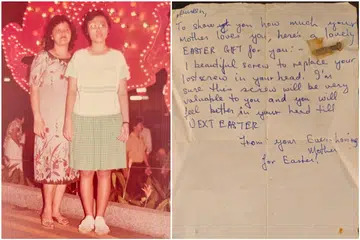 To show you how much your
mother loves you, here's a lovely
EASTER GIFT for you:-
1 beautiful screw to replace your
lost screw in your head. I'm
sure this screw will be very
valuable to you and you will
feel better in your head till
NEXT EASTER
From your Ever loving
Mother
for Easter!